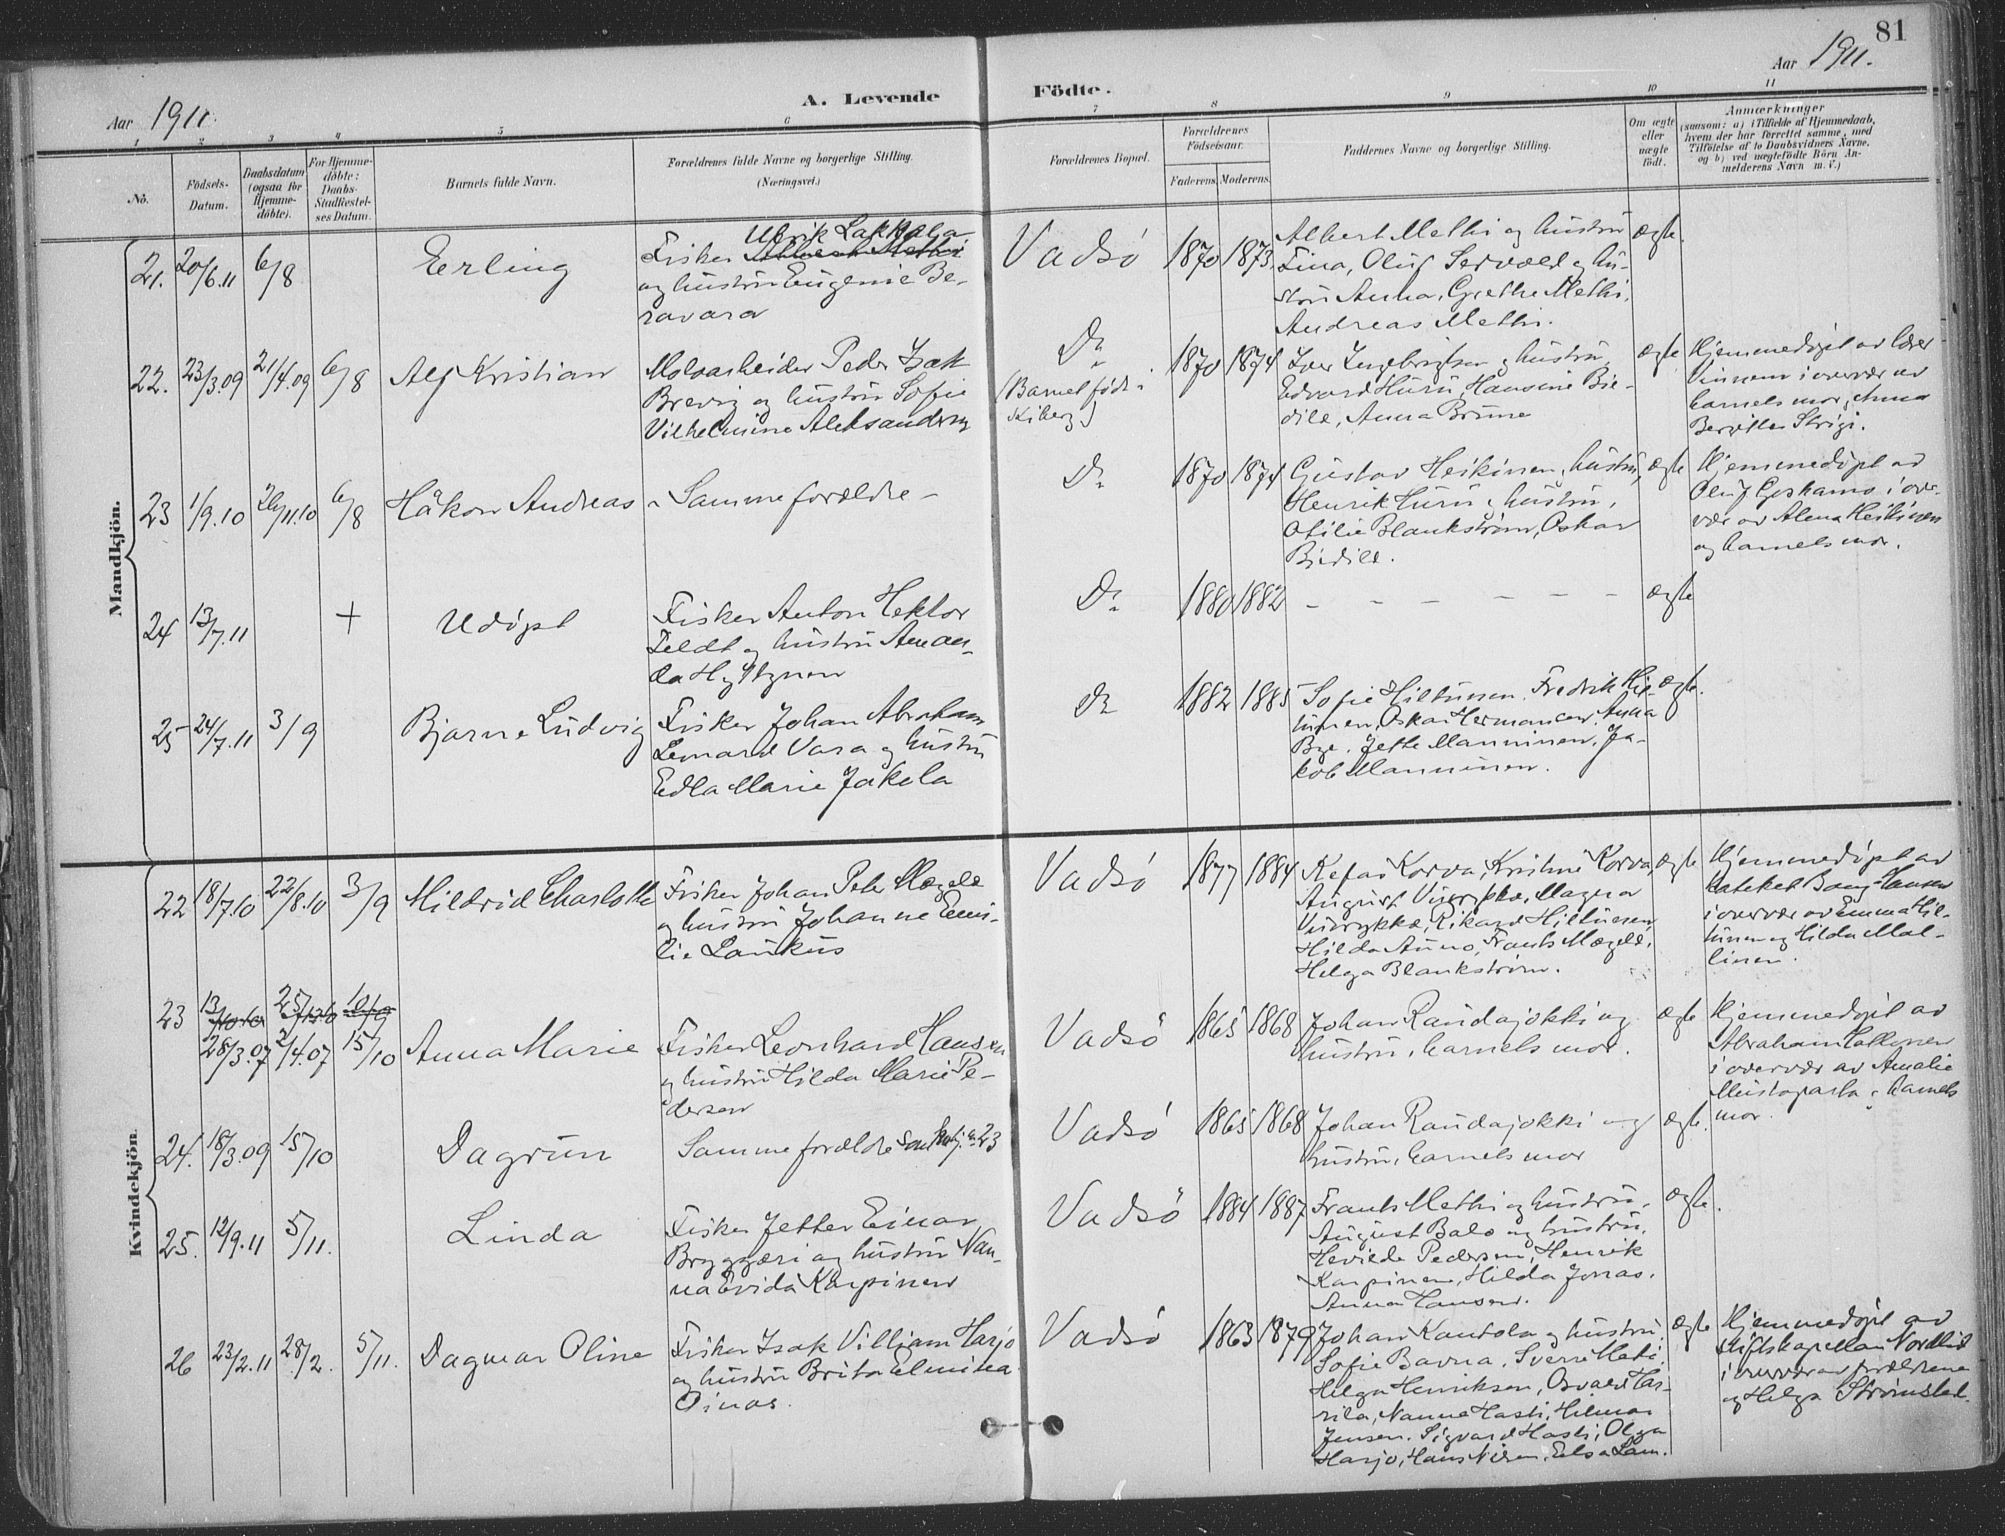 81
Aar 1911.
A. Levende Födte.
Aar 1911.
1 2 3 4 5 6 7 8 9 10 11
No.
Födsels-Datum.
Daabsdatum (ogsaa for Hjemme-döbte).
For Hjemme-döbte: Daabs-Stadfæstel-ses Datum.
Barnets fulde Navn.
Forældrenes fulde Navne og borgerlige Stilling.
(Næringsvei.)
Forældrenes Bopæl.
Forældrenes Födselsaar.
Faderens. Moderens.
Faddernes Navne og borgerlige Stilling.
Om ægte eller uægte födt.
Anmærkninger
(saasom: a) i Tilfælde af Hjemmedaab,
hvem der har forrettet samme, med
Tilföielse af to Daabsvidners Navne,
og b) ved uægtefödte Börn An-
melderens Navn m. V.)
Mandkjön.
21. 20/6.11 6/8 Erling
Ulrik Lakkala
Fisker
og hustru Eugenie Be-
ravara
Vadsö 1870 1873
Albert Methi og hustru
Tina, Oluf Servæld og hu-
stru Anna, Grethe Methi,
Andreas Methi.
ægte.
22. 23/3.09 21/4.09 6/8 Alf Kristian
Moloarbeider Peder Isak
Brevig og hustru Sofie
Vilhelmine Aleksandersen
Do
(Barnet født i
Kiberg)
1870 1874
Iver Ingebrigtsen og hustru,
Edvard Huru, Hansine Bie-
dilæ, Anna Brune
ægte
Hjemmedøpt av lærer
Vinnem i overvær av
barnets mor, Anna
Bergitte Strigi.
23 1/9.10 26/11.10 6/8 Håkon Andreas
- Samme forældre -
Do 1870 1874
Gustav Heikinen, hustru,
Henrik Huru og hustru,
Otilie Blankstrøm, Oskar
Biedilæ.
ægte
Hjemmedøpt av
Oluf Eskamo i over-
vær av Alma Heikinen
og barnets mor.
24 13/7.11 + Udøpt
Fisker Anton Hektor
Feldt og hustru Aman-
da Hyttynen
Do 1880 1882
- - - - - -
ægte
25 24/7.11 3/9 Bjarne Ludvig
Fisker Johan Abraham
Leonard Vara og hustru
Edla Marie Jakola
Do 1882 1885
Sofie Hiltunen, Fredrik Hil-
tunen, Oskar Hermansen, Anna
Bye, Jette Manninen, Ja-
kob Manninen.
ægte.
Kvindekjön.
22 18/7.10 22/8.10 3/9 Hildrid Charlotte
Fisker Johan Peter Mægelæ
og hustru Johanne Emi-
lie Laukus
Vadsö 1877 1884
Kefas Korva, Kristine Korva,
August Vuorykka, Magna
Vuorykka, Rikard Hiltunen,
Hilda Auno, Frants Mægelæ,
Helga Blankstrøm.
ægte
Hjemmedøpt av
kateket Bang-Hansen
i overvær av Emma Hil-
tunen og Hilda Mal-
linen.
23 28/3.07 2/4.07 15/10 Anna Marie
Fisker Leonhard Hansen
og hustru Hilda Marie Pe-
dersen
Vadsö 1865 1868
Johan Raudajokki og
hustru, barnets mor.
ægte
Hjemmedøpt av
Abraham Hallonen
i overvær av Amalie
Mustaparta og barnets
mor.
24. 18/3.09 15/10 Dagrun
Samme forældre som kvkj. n. 23
Vadsö 1865 1868
Johan Raudajokki og
hustru, barnets mor
ægte.
25. 12/9.11 5/11. Linda
Fisker Jetter Einar
Bryggæri og hustru Nan-
na Evida Karpinen
Vadsö 1884 1887
Frants Methi og hustru,
August Balo og hustru,
Hevilde Pedersen, Henrik
Karpinen, Hilda Jonas,
Anna Hansen.
ægte.
26 23/2.11 28/2. 5/11. Dagmar Oline
Fisker Isak Villiam Harjo
og hustru Brita Elmina
Oinas.
Vadsö 1863 1879
Johan Kantola og hustru,
Sofie Bavna, Sverre Mati,
Helga Henriksen, Osvald Har-
rila, Nanna Hasti, Hilmar
Jensen, Sigvard Hasti, Olga
Harjo, Hans Nilsen, Elsa Lam.
ægte
Hjemmedøpt av
stiftskapellan Nordlid
i overvær av forældrene
og Helga Strømstad.